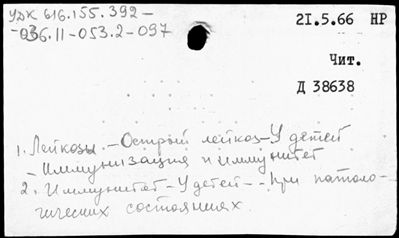 УДК 616.155.392 –
-036.11-053.2-097
21.5.66 НР
Чит.
Д 38638
1. Лейкозы. – Острый лейкоз – У детей
– Иммунизация и иммунитет
2. Иммунитет – У детей – При патоло-
гических состояниях.